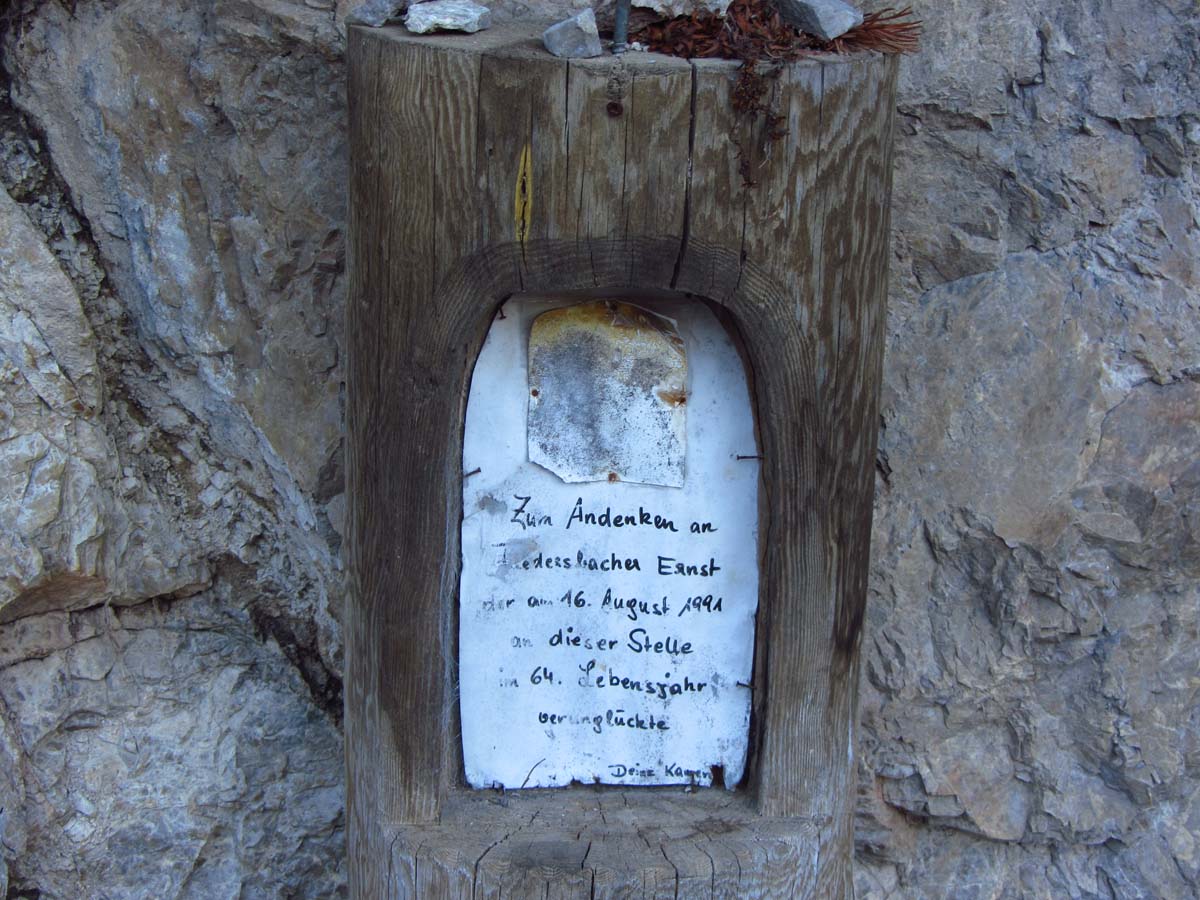 Zum Andenken an
Ernst
der am 16. August 1991
an dieser Stelle
im 64. Lebensjahr
verunglückte
Deine